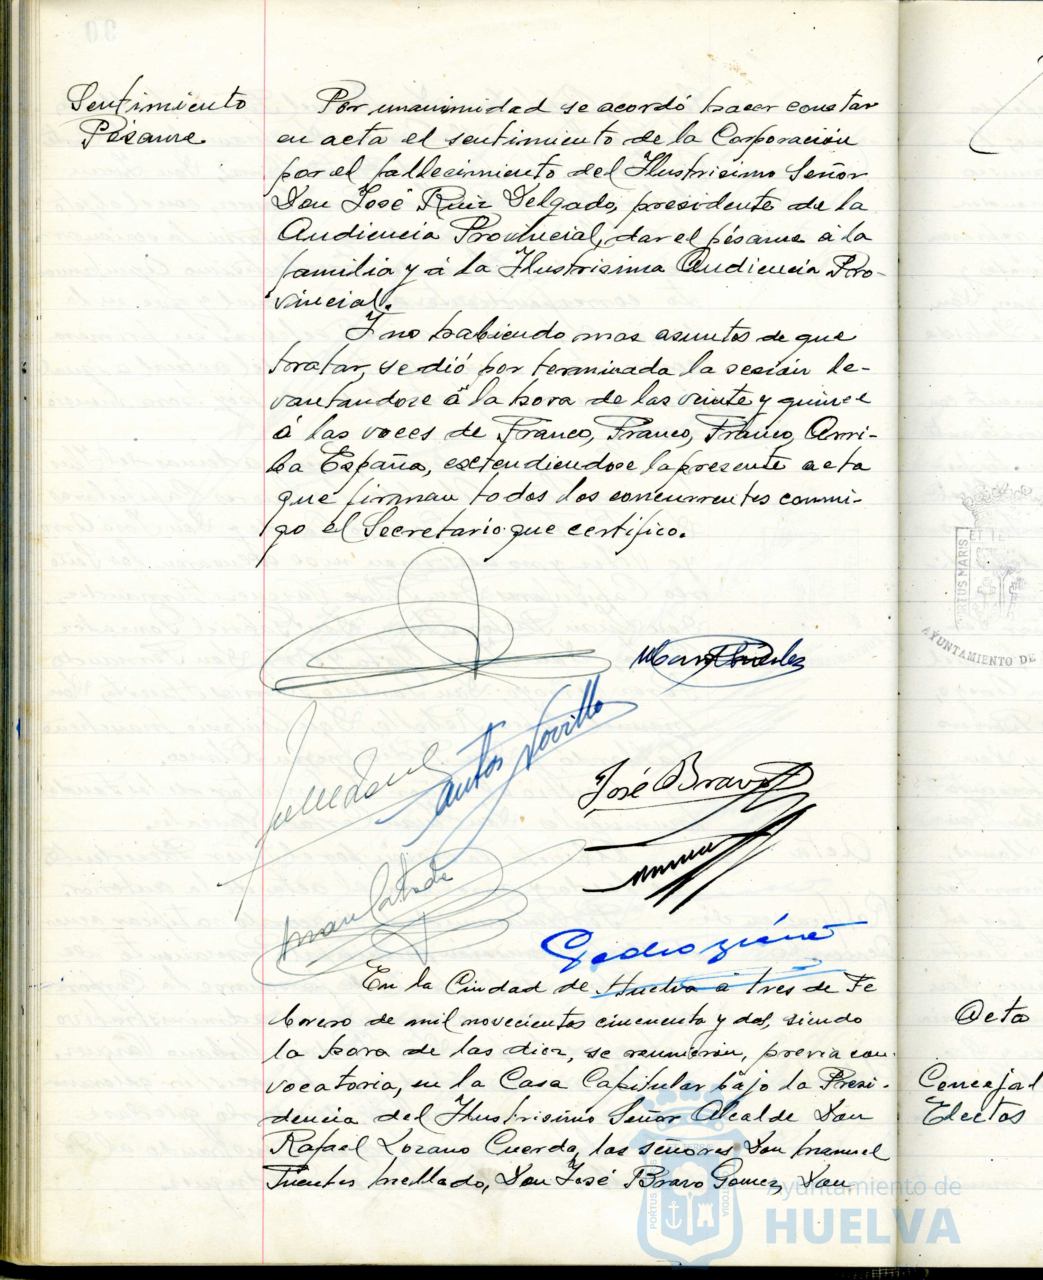 Sentimiento
Pésame
Por unanimidad se acordó hacer constar
en acta el sentimiento de la Corporación
por el fallecimiento del Ilustrisimo Señor
Don José Ruiz Delgado, presidente de la
Audiencia Provincial, dar el pésame á la
familia y á la Ilustrisima Audiencia Pro-
vincial.
Y no habiendo mas asuntos de que
tratar, se dió por terminada la sesión le-
vantandose á la hora de las veinte y quince
á las voces de Franco, Franco, Franco, Arri-
ba España, extendiendose la presente acta
que firman todos los concurrentes conmi-
go el Secretario que certifico.
Santos Novillo
José Bravo
En la Ciudad de Huelva a tres de Fe
brero de mil novecientos cincuenta y dos, siendo
la hora de las diez, se reunieron, previa con-
vocatoria, en la Casa Capitular bajo la Presi-
dencia del Ilustrisimo Señor Alcalde Don
Rafael Lozano Cuerda, los señores Don Manuel
Fuentes Mellado, Don José Bravo Gomez, Don
Acta
Concejal
Electos
PORTUS MARIS ET TERR
AYUNTAMIENTO DE
Ayuntamiento de
HUELVA